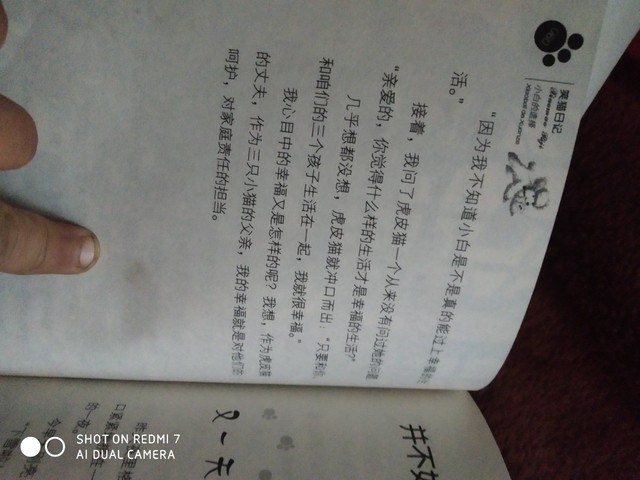 笑猫日记
小白的选择
“因为我不知道小白是不是真的能过上幸福的生
活。”
接着，我问了虎皮猫一个从来没有问过她的问题：
“亲爱的，你觉得什么样的生活才是幸福的生活？”
几乎想都没想，虎皮猫就冲口而出：“只要和你、
和咱们的三个孩子生活在一起，我就很幸福。”
我心目中的幸福又是怎样的呢？我想，作为虎皮猫
的丈夫，作为三只小猫的父亲，我的幸福就是对他们的
呵护，对家庭责任的担当。
并不
又一天
的一夜。
SHOT ON REDMI 7
AI DUAL CAMERA